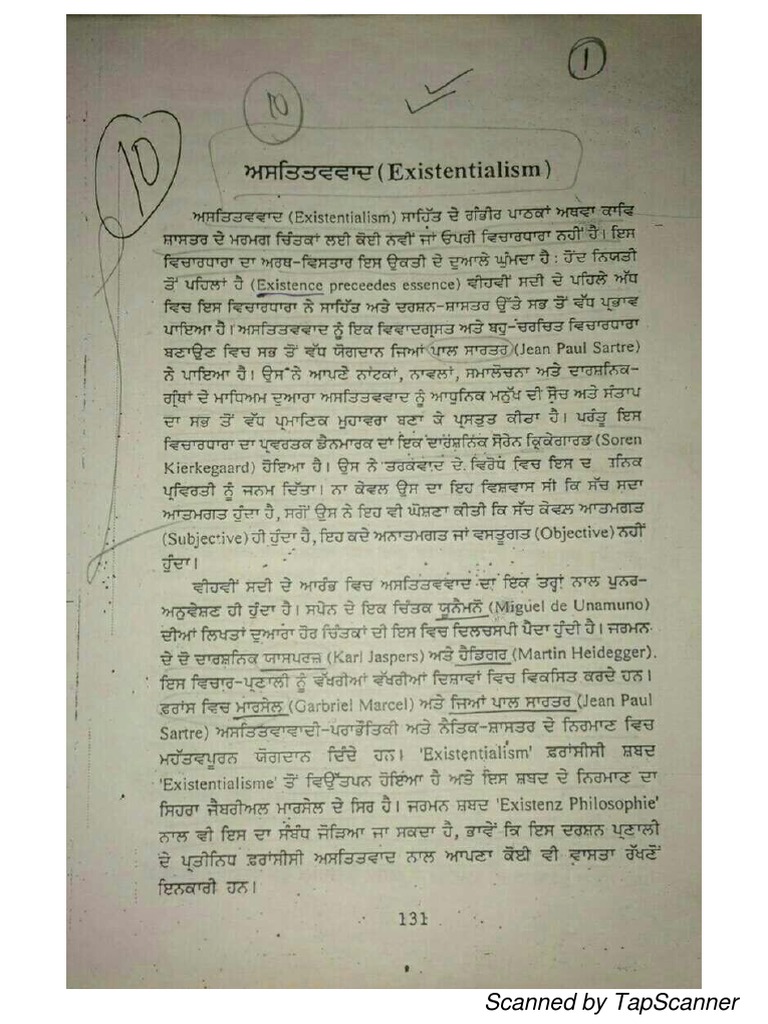 1
10
10
ਅਸਤਿਤਵਵਾਦ (Existentialism)
ਅਸਤਿਤਵਵਾਦ (Existentialism) ਸਾਹਿੱਤ ਦੇ ਗੰਭੀਰ ਪਾਠਕਾਂ ਅਥਵਾ ਕਾਵਿ
ਸ਼ਾਸਤਰ ਦੇ ਮਰਮਗ ਚਿੰਤਕਾਂ ਲਈ ਕੋਈ ਨਵੀਂ ਜਾਂ ਓਪਰੀ ਵਿਚਾਰਧਾਰਾ ਨਹੀਂ ਹੈ। ਇਸ
ਵਿਚਾਰਧਾਰਾ ਦਾ ਅਰਥ-ਵਿਸਤਾਰ ਇਸ ਉਕਤੀ ਦੇ ਦੁਆਲੇ ਘੁੰਮਦਾ ਹੈ : ਹੋਂਦ ਨਿਯਤੀ
ਤੋਂ ਪਹਿਲਾਂ ਹੈ (Existence preceedes essence) ਵੀਹਵੀਂ ਸਦੀ ਦੇ ਪਹਿਲੇ ਅੱਧ
ਵਿਚ ਇਸ ਵਿਚਾਰਧਾਰਾ ਨੇ ਸਾਹਿੱਤ ਅਤੇ ਦਰਸ਼ਨ-ਸ਼ਾਸਤਰ ਉੱਤੇ ਸਭ ਤੋਂ ਵੱਧ ਪ੍ਰਭਾਵ
ਪਾਇਆ ਹੈ। ਅਸਤਿਤਵਵਾਦ ਨੂੰ ਇਕ ਵਿਵਾਦਗ੍ਰਸਤ ਅਤੇ ਬਹੁ-ਚਰਚਿਤ ਵਿਚਾਰਧਾਰਾ
ਬਣਾਉਣ ਵਿਚ ਸਭ ਤੋਂ ਵੱਧ ਯੋਗਦਾਨ ਜਿਆਂ ਪਾਲ ਸਾਰਤਰ (Jean Paul Sartre)
ਨੇ ਪਾਇਆ ਹੈ। ਉਸ ਨੇ ਆਪਣੇ ਨਾਟਕਾਂ, ਨਾਵਲਾਂ, ਸਮਾਲੋਚਨਾ ਅਤੇ ਦਾਰਸ਼ਨਿਕ-
ਗ੍ਰੰਥਾਂ ਦੇ ਮਾਧਿਅਮ ਦੁਆਰਾ ਅਸਤਿਤਵਵਾਦ ਨੂੰ ਆਧੁਨਿਕ ਮਨੁੱਖ ਦੀ ਸੋਚ ਅਤੇ ਸੰਤਾਪ
ਦਾ ਸਭ ਤੋਂ ਵੱਧ ਪ੍ਰਮਾਣਿਕ ਮੁਹਾਵਰਾ ਬਣਾ ਕੇ ਪ੍ਰਸਤੁਤ ਕੀਤਾ ਹੈ। ਪਰੰਤੂ ਇਸ
ਵਿਚਾਰਧਾਰਾ ਦਾ ਪ੍ਰਵਰਤਕ ਡੈਨਮਾਰਕ ਦਾ ਇਕ ਦਾਰਸ਼ਨਿਕ ਸੋਰੇਨ ਕ੍ਰਿਕੇਗਾਰਡ (Soren
Kierkegaard) ਹੋਇਆ ਹੈ। ਉਸ ਨੇ ਤਰਕਵਾਦ ਦੇ ਵਿਰੋਧ ਵਿਚ ਇਸ
ਪ੍ਰਵਿਰਤੀ ਨੂੰ ਜਨਮ ਦਿੱਤਾ। ਨਾ ਕੇਵਲ ਉਸ ਦਾ ਇਹ ਵਿਸ਼ਵਾਸ ਸੀ ਕਿ ਸੱਚ ਸਦਾ
ਆਤਮਗਤ ਹੁੰਦਾ ਹੈ, ਸਗੋਂ ਉਸ ਨੇ ਇਹ ਵੀ ਘੋਸ਼ਣਾ ਕੀਤੀ ਕਿ ਸੱਚ ਕੇਵਲ ਆਤਮਗਤ
(Subjective) ਹੀ ਹੁੰਦਾ ਹੈ, ਇਹ ਕਦੇ ਅਨਾਤਮਗਤ ਜਾਂ ਵਸਤੂਗਤ (Objective) ਨਹੀਂ
ਹੁੰਦਾ।
ਵੀਹਵੀਂ ਸਦੀ ਦੇ ਆਰੰਭ ਵਿਚ ਅਸਤਿਤਵਵਾਦ ਦਾ ਇਕ ਤਰ੍ਹਾਂ ਨਾਲ ਪੁਨਰ-
ਅਨੁਵੇਸ਼ਣ ਹੀ ਹੁੰਦਾ ਹੈ। ਸਪੇਨ ਦੇ ਇਕ ਚਿੰਤਕ ਯੂਨੈਮਨੋ (Miguel de Unamuno)
ਦੀਆਂ ਲਿਖਤਾਂ ਦੁਆਰਾ ਹੋਰ ਚਿੰਤਕਾਂ ਦੀ ਇਸ ਵਿਚ ਦਿਲਚਸਪੀ ਪੈਦਾ ਹੁੰਦੀ ਹੈ। ਜਰਮਨ
ਦੇ ਦੋ ਦਾਰਸ਼ਨਿਕ ਯਾਸਪਰਜ਼ (Karl Jaspers) ਅਤੇ ਹੈਡਿਗਰ (Martin Heidegger).
ਇਸ ਵਿਚਾਰ-ਪ੍ਰਣਾਲੀ ਨੂੰ ਵੱਖਰੀਆਂ ਵੱਖਰੀਆਂ ਦਿਸ਼ਾਵਾਂ ਵਿਚ ਵਿਕਸਿਤ ਕਰਦੇ ਹਨ।
ਫ਼ਰਾਂਸ ਵਿਚ ਮਾਰਸੇਲ (Garbriel Marcel) ਅਤੇ ਜਿਆਂ ਪਾਲ ਸਾਰਤਰ (Jean Paul
Sartre) ਅਸਤਿਤਵਾਵਾਦੀ-ਪਰਾਭੌਤਿਕੀ ਅਤੇ ਨੈਤਿਕ-ਸ਼ਾਸਤਰ ਦੇ ਨਿਰਮਾਣ ਵਿਚ
ਮਹੱਤਵਪੂਰਨ ਯੋਗਦਾਨ ਦਿੰਦੇ ਹਨ। 'Existentialism' ਫ਼ਰਾਂਸੀਸੀ ਸ਼ਬਦ
'Existentialisme' ਤੋਂ ਵਿਉੱਤਪਨ ਹੋਇਆ ਹੈ ਅਤੇ ਇਸ ਸ਼ਬਦ ਦੇ ਨਿਰਮਾਣ ਦਾ
ਸਿਹਰਾ ਜੈਬਰੀਅਲ ਮਾਰਸੇਲ ਦੇ ਸਿਰ ਹੈ। ਜਰਮਨ ਸ਼ਬਦ 'Existenz Philosophie'
ਨਾਲ ਵੀ ਇਸ ਦਾ ਸੰਬੰਧ ਜੋੜਿਆ ਜਾ ਸਕਦਾ ਹੈ, ਭਾਵੇਂ ਕਿ ਇਸ ਦਰਸ਼ਨ ਪ੍ਰਣਾਲੀ
ਦੇ ਪ੍ਰਤੀਨਿਧ ਫ਼ਰਾਂਸੀਸੀ ਅਸਤਿਤਵਾਦ ਨਾਲ ਆਪਣਾ ਕੋਈ ਵੀ ਵਾਸਤਾ ਰੱਖਣੋਂ
ਇਨਕਾਰੀ ਹਨ।
131
Scanned by TapScanner